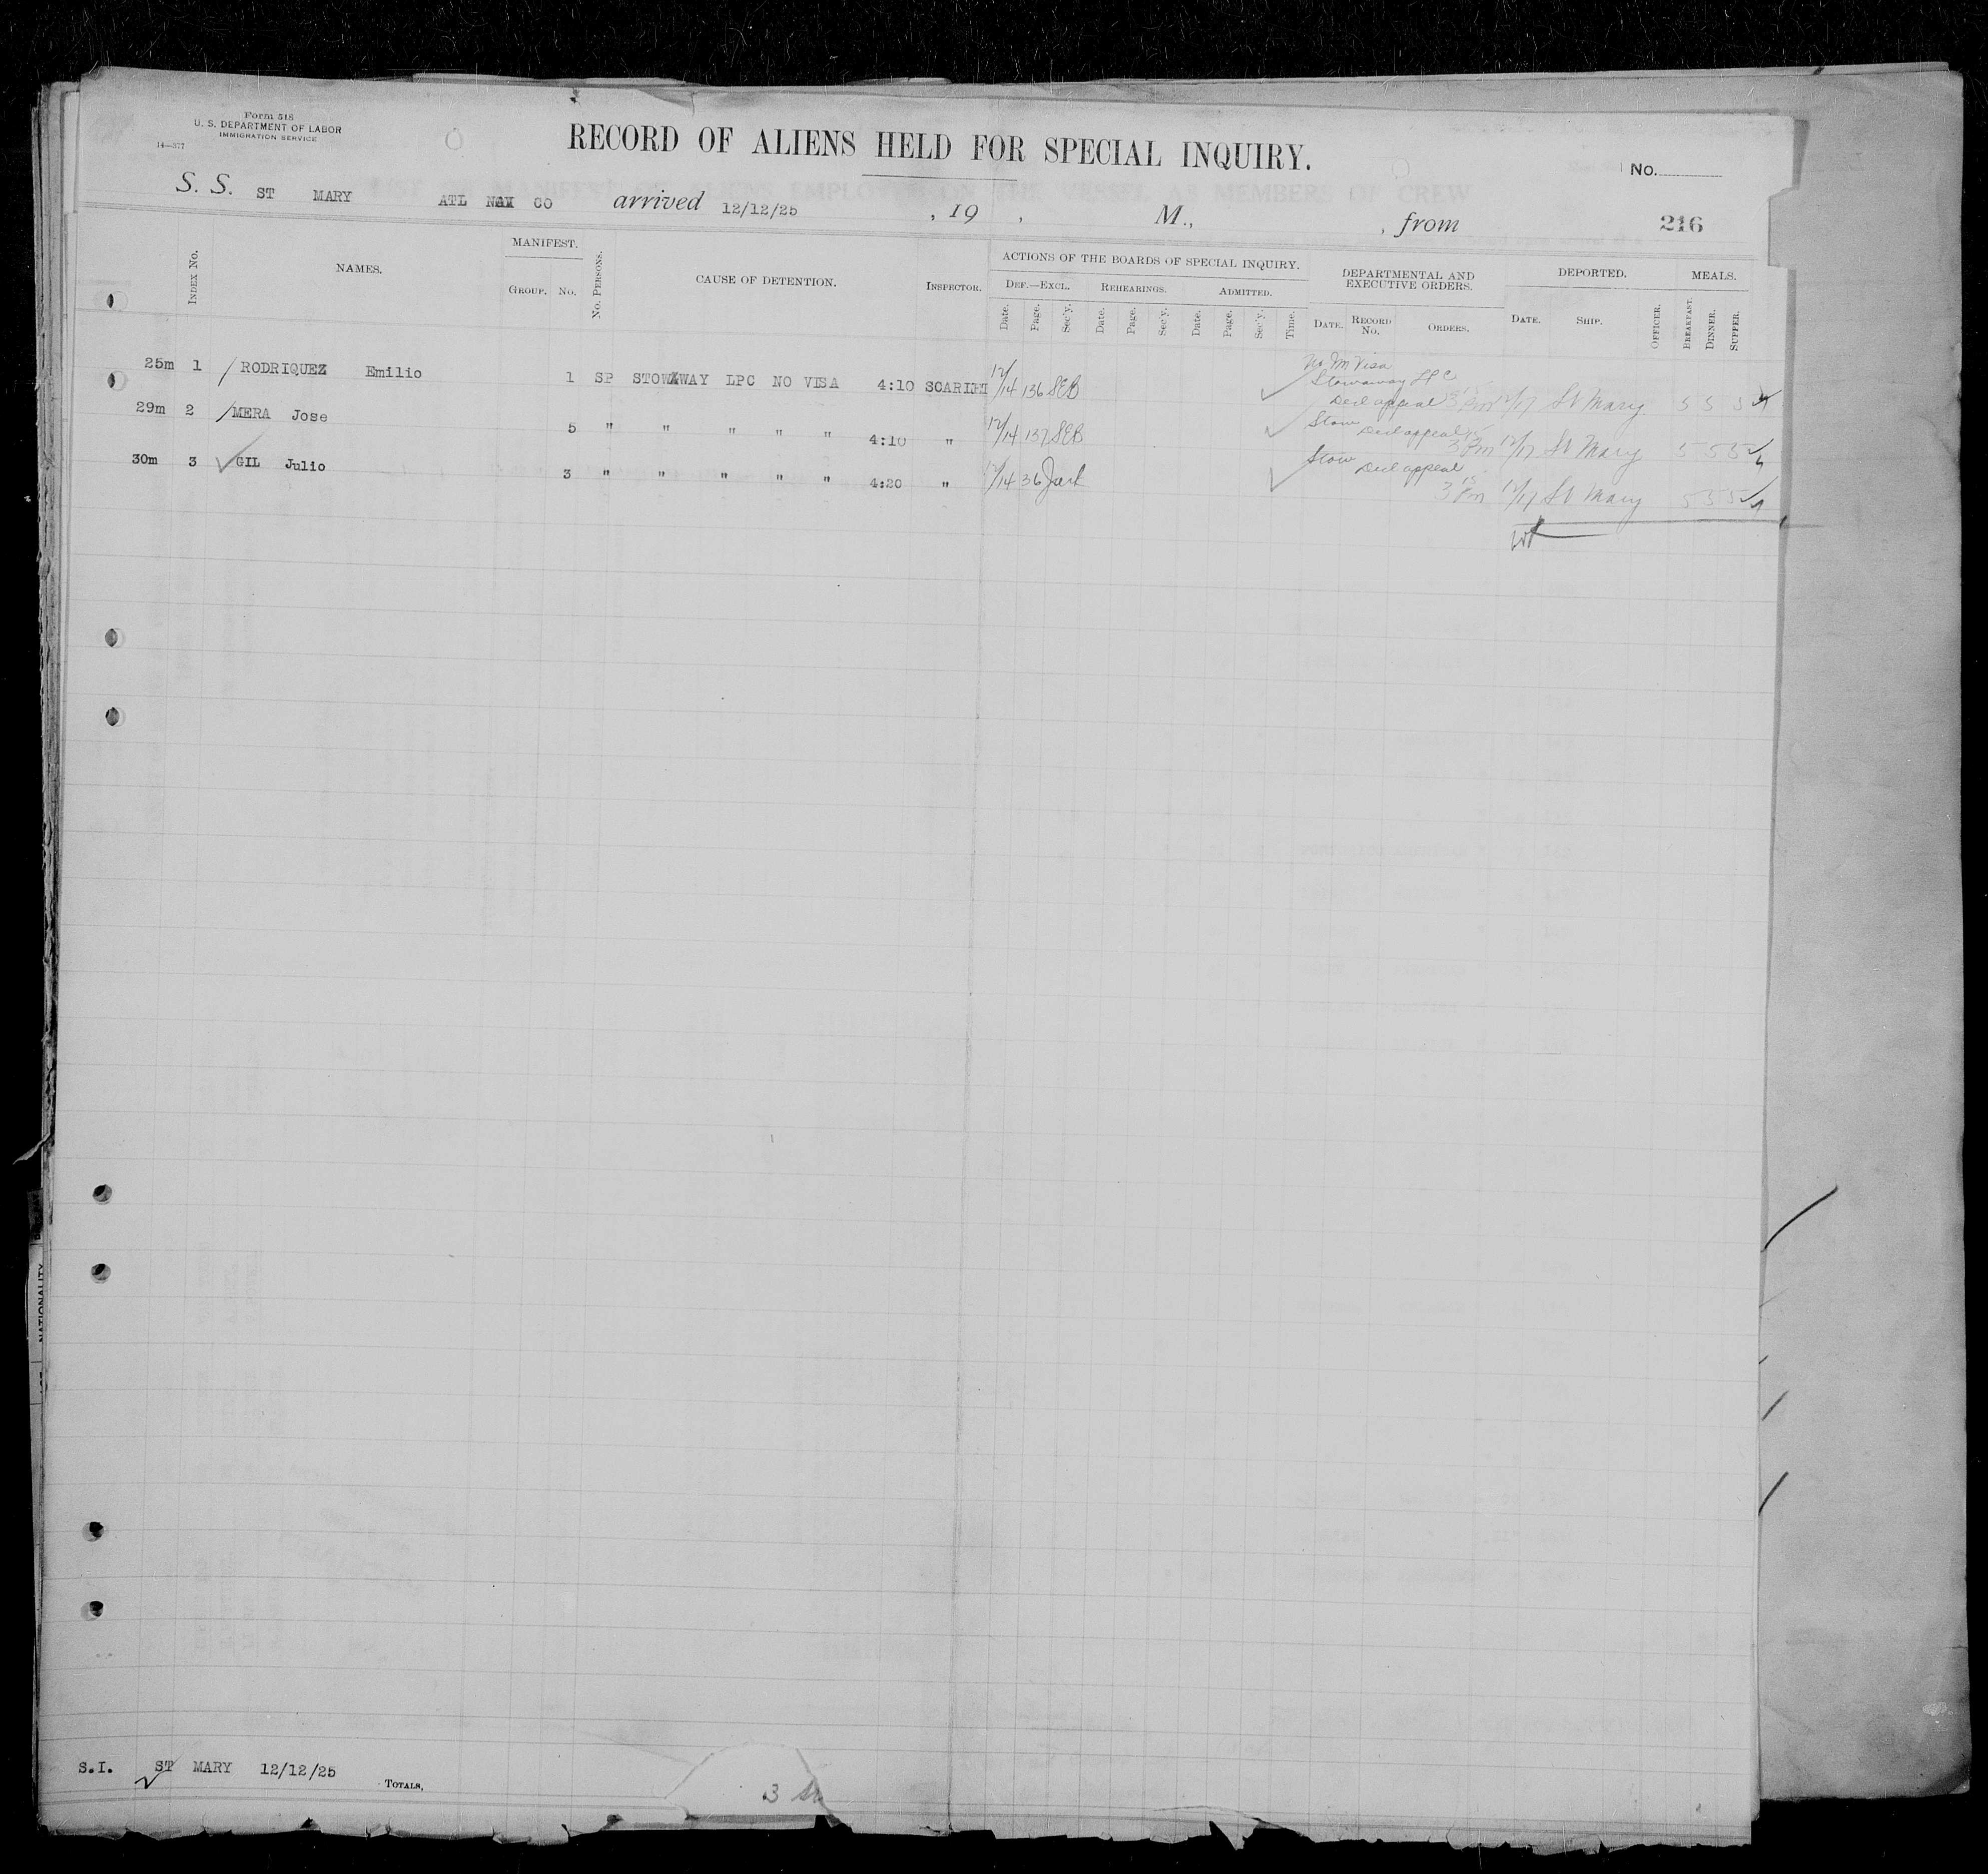 Form 518
U. S. DEPARTMENT OF LABOR
IMMIGRATION SERVICE
14—377
RECORD OF ALIENS HELD FOR SPECIAL INQUIRY.
No.
S. S. ST MARY ATL NAV CO arrived 12/12/25 , 19 , M., , from 216
INDEX No. NAMES. MANIFEST. GROUP. No. No. PERSONS. CAUSE OF DETENTION. INSPECTOR. ACTIONS OF THE BOARDS OF SPECIAL INQUIRY. DEF.—EXCL. REHEARINGS. ADMITTED. DEPARTMENTAL AND EXECUTIVE ORDERS. DEPORTED. MEALS.
Date. Page. Sec'y. Date. Page. Sec'y. Date. Page. Sec'y. Time. DATE. RECORD No. ORDERS. DATE. SHIP. OFFICER. BREAKFAST. DINNER. SUPPER.
25m 1 / RODRIQUEZ Emilio 1 SP STOWAWAY LPC NO VISA 4:10 12/14 136 SEB No Im Visa Stowaway LPC Decl appeal 3 15 Pm 12/17 St Mary 5 5 5
29m 2 / MERA Jose 5 " " " " " 4:10 " 12/14 137 SEB Stow Decl appeal 3 15 Pm 12/17 St Mary 5 5 5
30m 3 GIL Julio 3 " " " " " 4:20 " 12/14 36 Stow Decl appeal 3 15 Pm 12/17 St Mary 5 5 5
S.I. ST MARY 12/12/25 TOTALS,
3
NATIONALITY